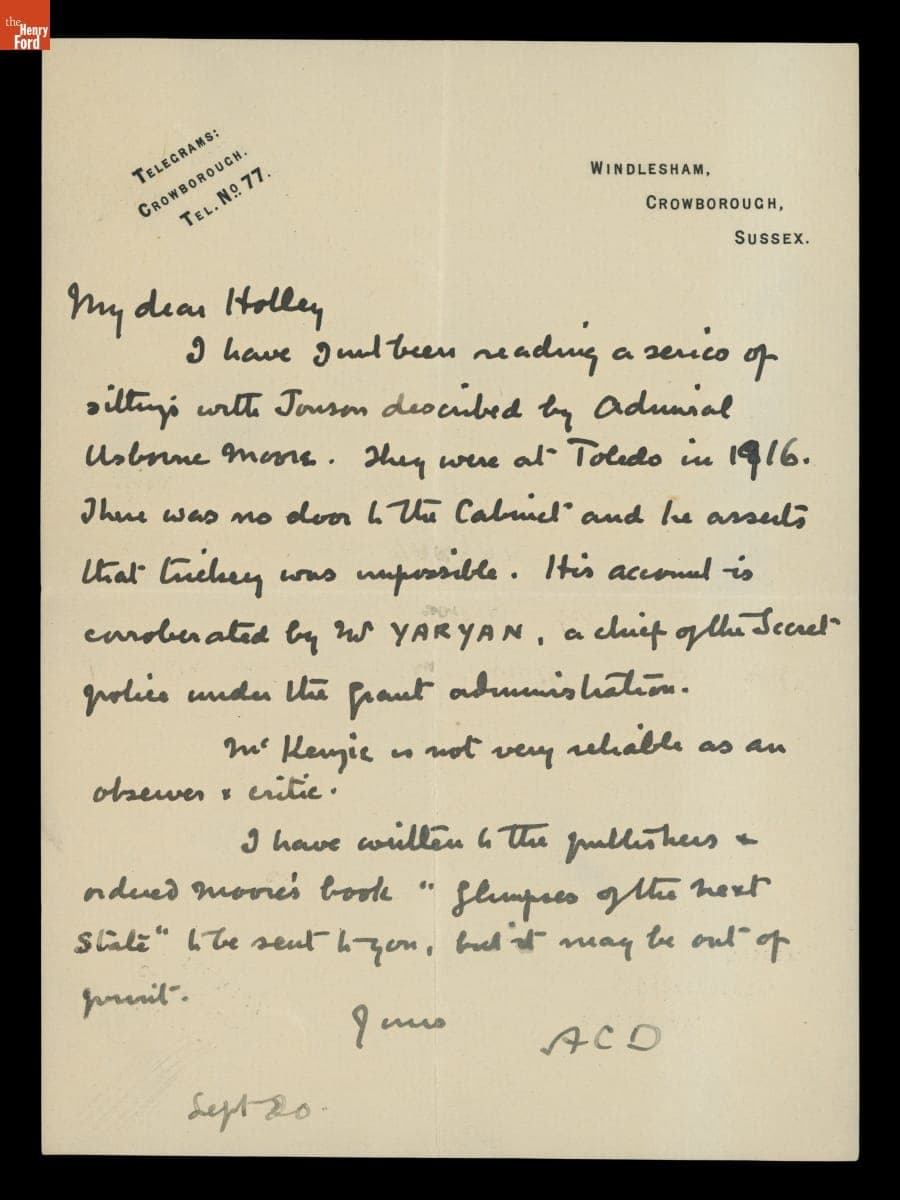 the
Henry
Ford
TELEGRAMS:
CROWBOROUGH.
TEL. No. 77.
WINDLESHAM,
CROWBOROUGH,
SUSSEX.
My dear Holley
I have just been reading a series of
sittings with Jonson described by Admiral
Usborne Moore. They were at Toledo in 1916.
There was no door to the Cabinet and he asserts
that trickery was impossible. His account is
corroberated by Mr YARYAN, a chief of the Secret
police under the Grant administration.
McKenzie is not very reliable as an
observer & critic.
I have written to the publishers &
ordered Moore's book "Glimpses of the Next
State" to be sent to you, but it may be out of
print.
Yours
A C D
Sept 20.